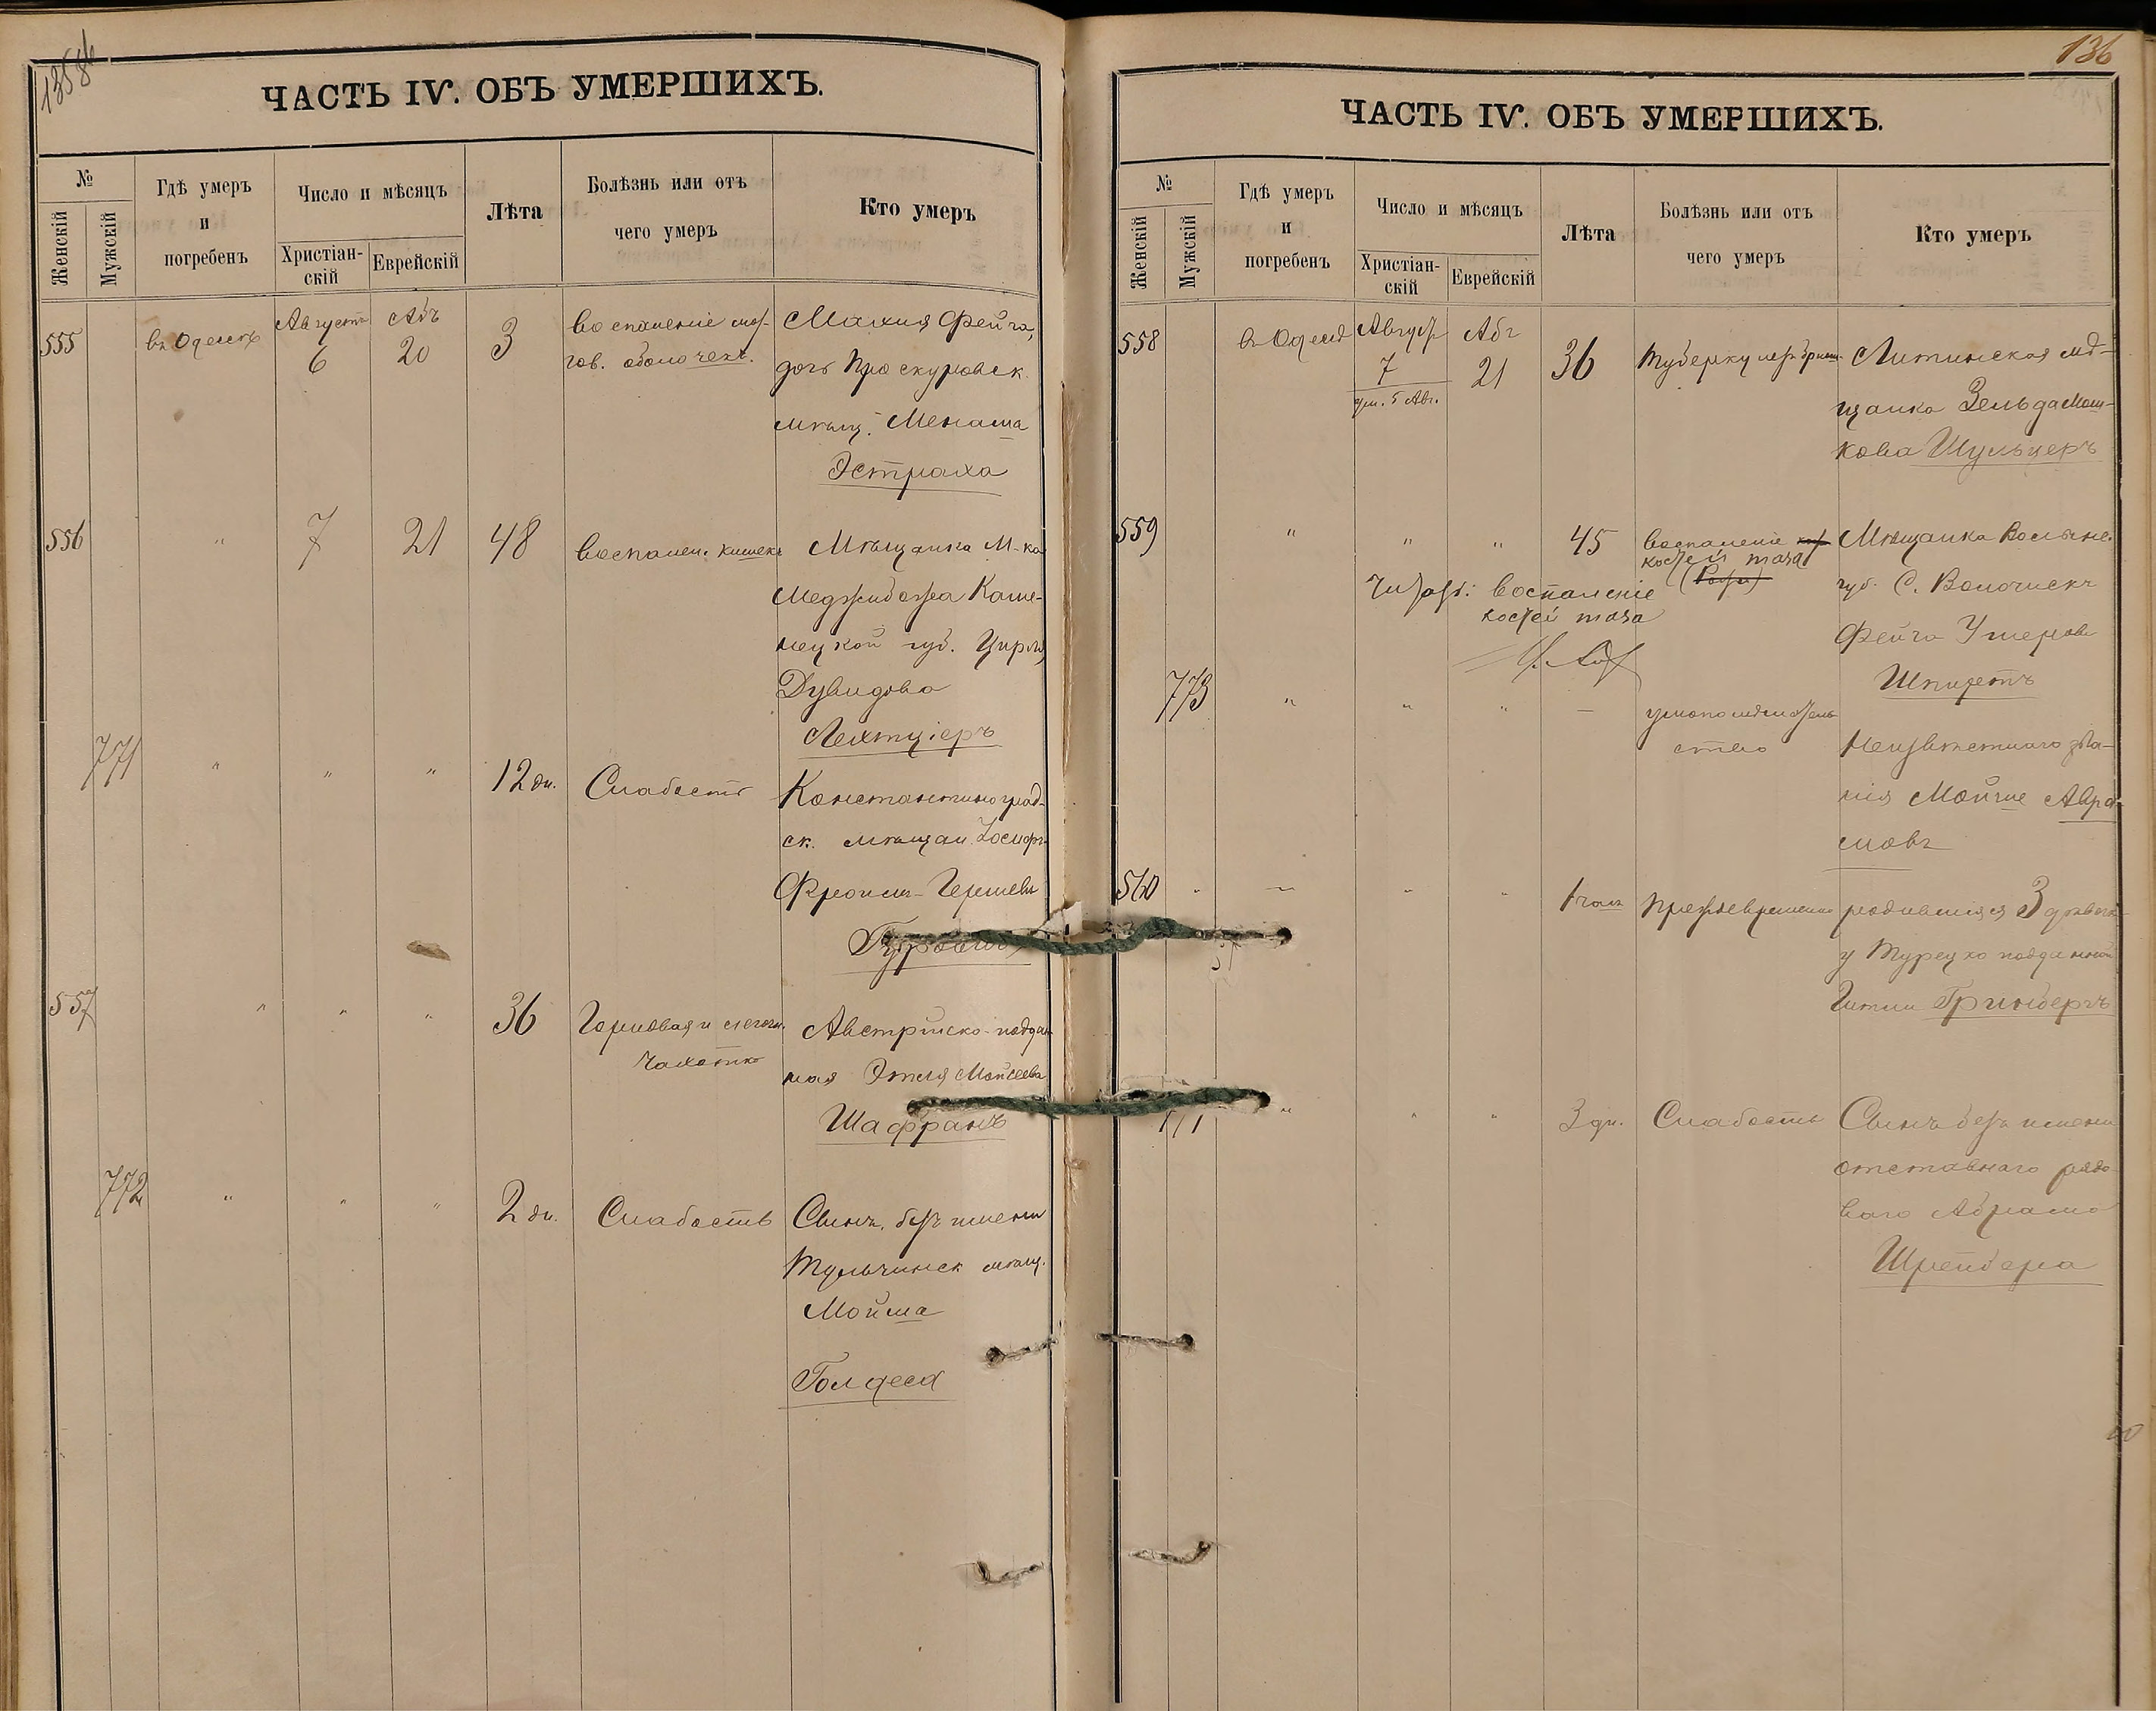 135об
ЧАСТЬ IV. ОБЪ УМЕРШИХЪ.
№
Женскій
Мужскій
Гдѣ умеръ
и
погребенъ
Число и мѣсяцъ
Христіан-
скій
Еврейскій
Лѣта
Болѣзнь или отъ
чего умеръ
Кто умеръ
555
въ Одессѣ
Августа
6
Абъ
20
3
воспаленіе моз-
гов. оболочекъ.
Малия Фейга,
дочь Проскуровск.
мѣщ. Менаша
Эстраха
556
"
7
21
48
воспален. кишекъ
Мѣщанка М-ка
Меджибожа Каме-
нецкой губ.
Дувидова
Лехтціеръ
771
"
"
"
12 дн.
Слабость
Константиноград-
ск. мѣщан. Іосифъ
Фроимъ-Гершевъ
557
"
"
"
36
Горловая и легочн.
чахотка
Австрійско-поддан-
ная Этля Мойсеева
Шафранъ
772
"
"
"
2 дн.
Слабость
Сынъ, безъ имени
Тульчинск мѣщ.
Мойша
Голдеса
136
ЧАСТЬ IV. ОБЪ УМЕРШИХЪ.
№
Женскій
Мужскій
Гдѣ умеръ
и
погребенъ
Число и мѣсяцъ
Христіан-
скій
Еврейскій
Лѣта
Болѣзнь или отъ
чего умеръ
Кто умеръ
558
въ Одессѣ
Август
7
ум. 5 Авг.
Абъ
21
36
Туберкулезъ
Литинская мѣ-
щанка Зельда Мош-
кова Шульцеръ
559
"
"
"
45
воспаленіе
костей таза
Мѣщанка Волынс.
губ. С. Волочискъ
Фейга Ушерова
Шпизетъ
Читать: воспаленіе
костей таза
773
"
"
"
—
умопомѣшатель-
ство
Неизвѣстнаго зва-
нія Мойше Авра-
мовъ
560
"
"
"
"
1 часъ
преждевременно
родившіяся 3 дѣвочк.
у Турецко подданной
Гитли Гринбергъ
"
"
"
3 дн.
Слабость
Сынъ безъ имени
отставнаго рядо-
ваго Абрама
Шрейбера